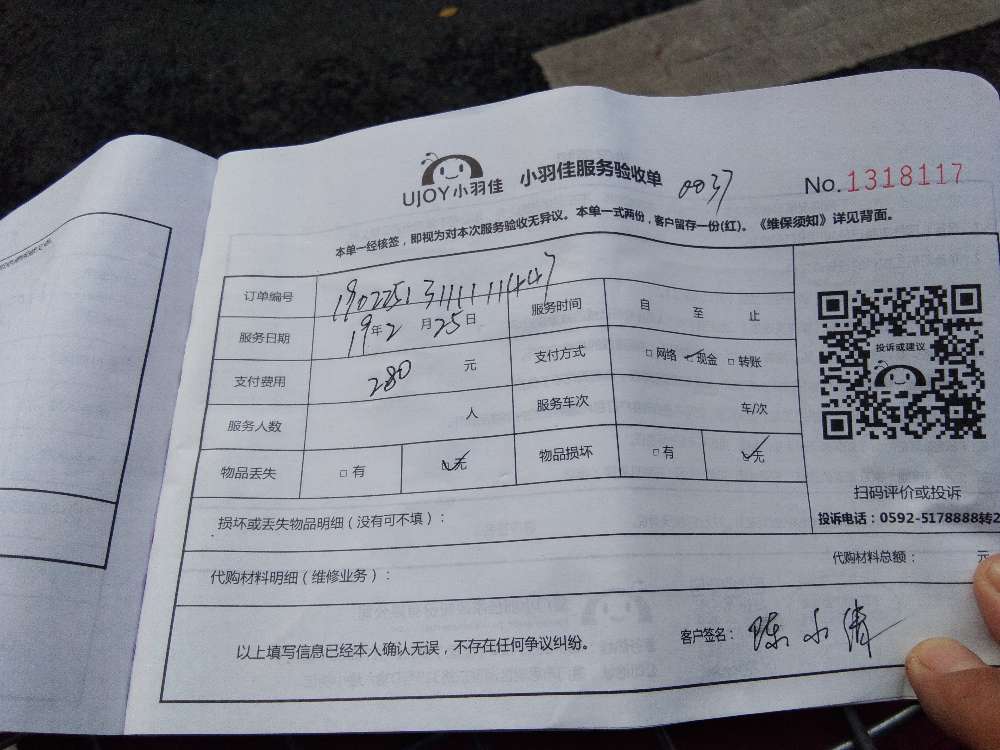 UJOY小羽佳 小羽佳服务验收单 0037 No.1318117
本单一经核签，即视为对本次服务验收无异议。本单一式两份，客户留存一份(红)。《维保须知》详见背面。
订单编号
服务日期 19年2月25日 服务时间 自 至 止
支付费用 280 元 支付方式 □网络 ☑现金 □转账
服务人数 人 服务车次 车/次
物品丢失 □有 ☑无 物品损坏 □有 ☑无
投诉或建议
扫码评价或投诉
投诉电话：0592-5178888转2
损坏或丢失物品明细（没有可不填）：
代购材料明细（维修业务）： 代购材料总额： 元
以上填写信息已经本人确认无误，不存在任何争议纠纷。 客户签名：陈小倩